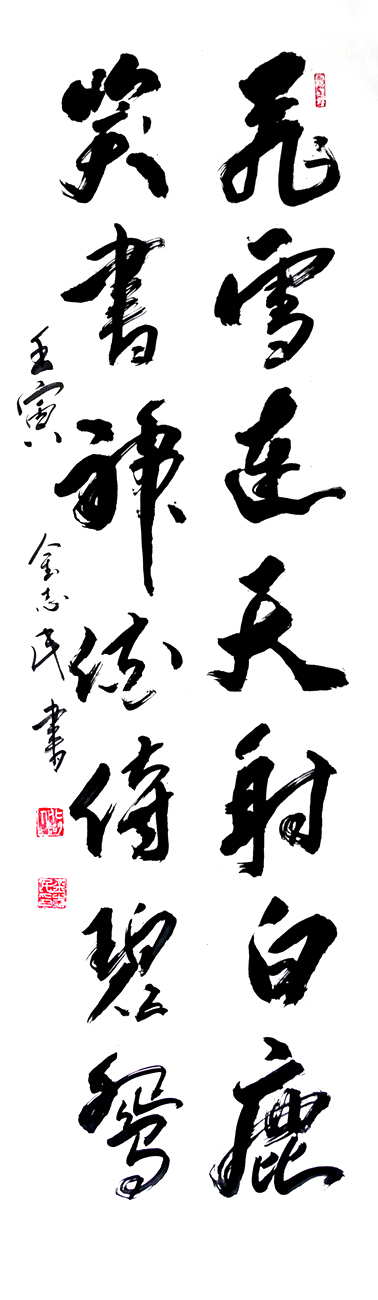 飛雪連天射白鹿
笑書神俠倚碧鴛
壬寅 金志民書